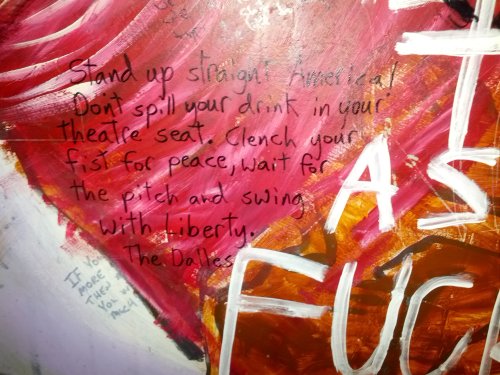 Stand up straight America!
Don't spill your drink in your
theatre seat. Clench your
fist for peace, wait for
the pitch and swing
with Liberty.
The Dalles
IS
AS
FUC
IF YOU
MORE
THEN
YOU